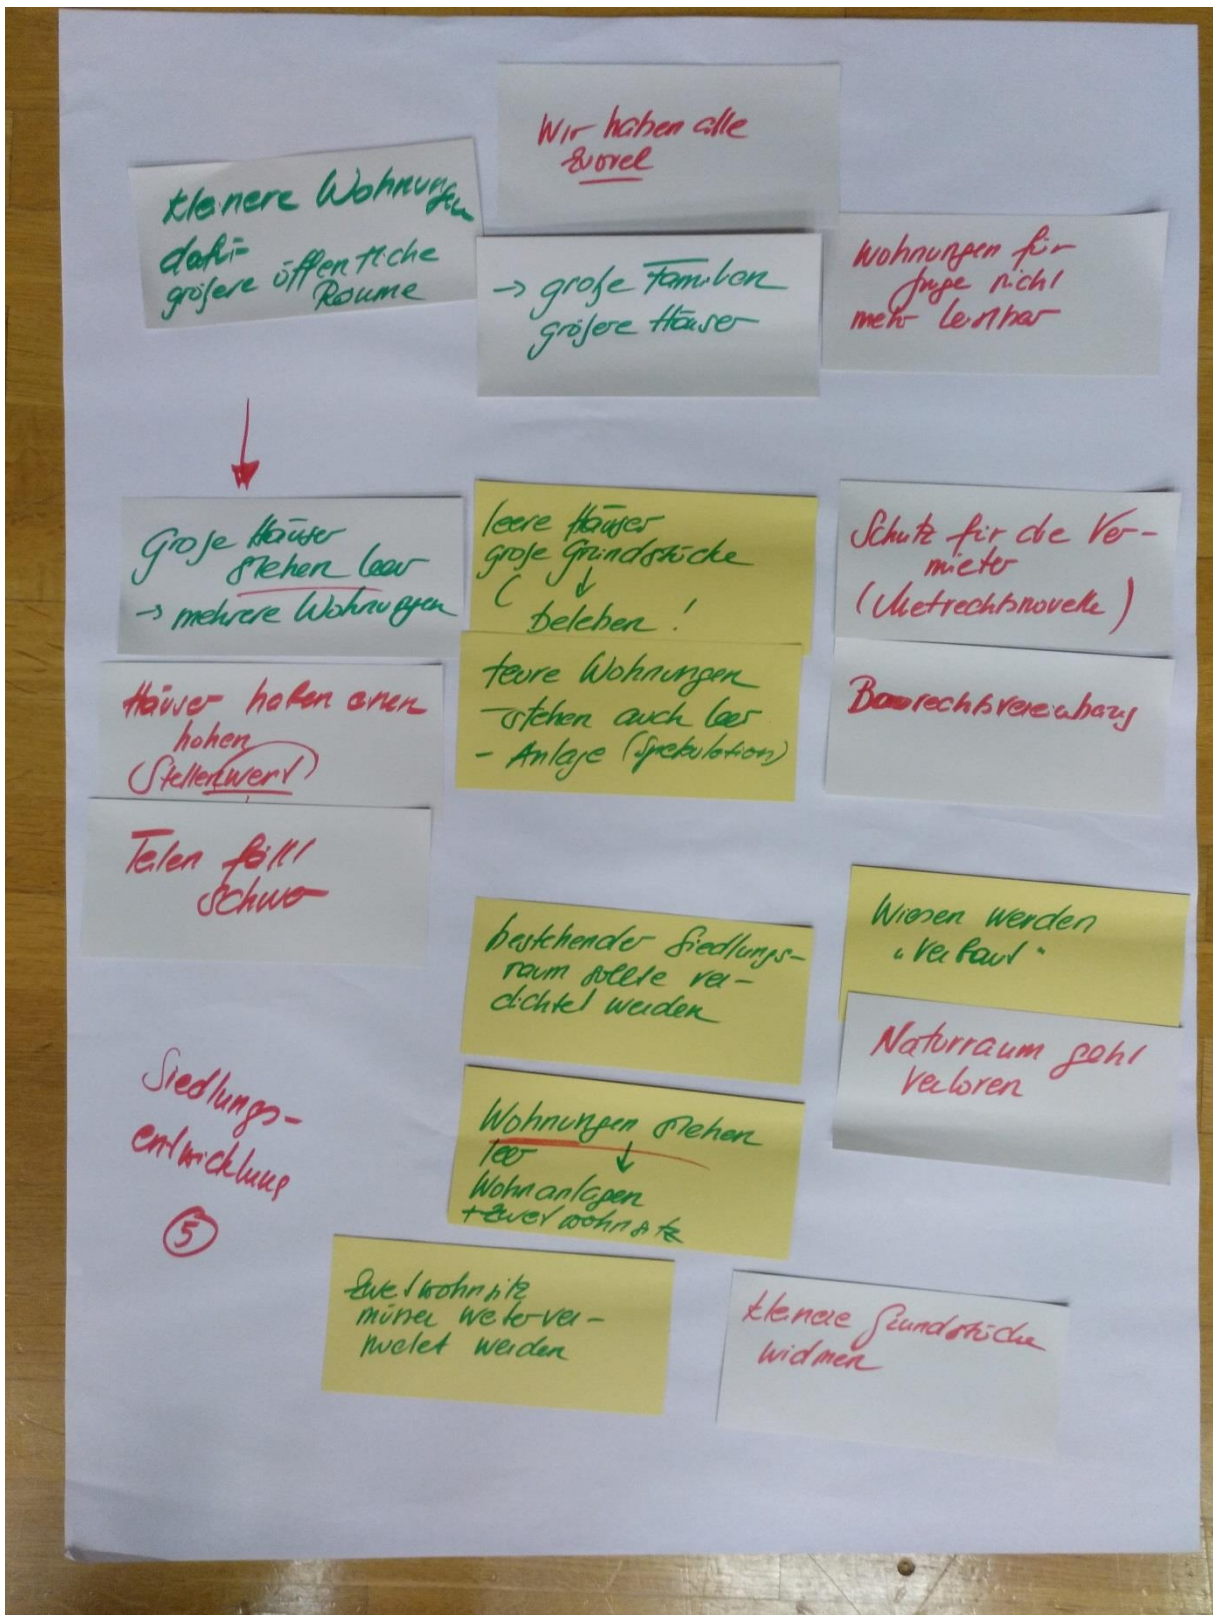 Wir haben alle
zuviel
kleinere Wohnungen
dafür
größere öffentliche
Räume
→ große Familien
größere Häuser
Wohnungen für
Junge nicht
mehr leistbar
Große Häuser
stehen leer
→ mehrere Wohnungen
leere Häuser
große Grundstücke
↓
beleben!
Schutz für die Ver-
mieter
(Mietrechtsnovelle)
Häuser haben einen
hohen
(Stellenwert)
teure Wohnungen
- stehen auch leer
- Anlage (Spekulation)
Baurechtsvereinbarg
Teilen fällt
schwer
bestehender Siedlungs-
raum sollte ver-
dichtet werden
Wiesen werden
"verbaut"
Naturraum geht
verloren
Siedlungs-
entwicklung
5
Wohnungen stehen
leer ↓
Wohnanlagen
+ Zweitwohnsitz
Zweitwohnsitz
müssen weiterver-
mietet werden
kleinere Grundstücke
widmen